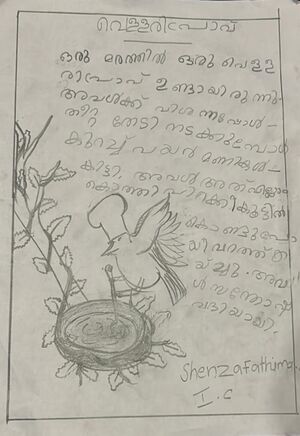 വെള്ളരിപ്രാവ്
ഒരു മരത്തിൽ ഒരു വെള്ള
രിപ്രാവ് ഉണ്ടായിരുന്നു.
അവൾക്ക് വിശന്നപ്പോൾ
തീറ്റ തേടി നടക്കുമ്പോൾ
കുറച്ച് പയർ മണികൾ
കിട്ടി. അവൾ അതെല്ലാം
കൊത്തി പെറുക്കി കൂട്ടിൽ
കൊണ്ടുപോ
യി
വെച്ചു. അവ
ൾ സന്തോഷ
വതിയായി.
Shenza Fathima
I. C